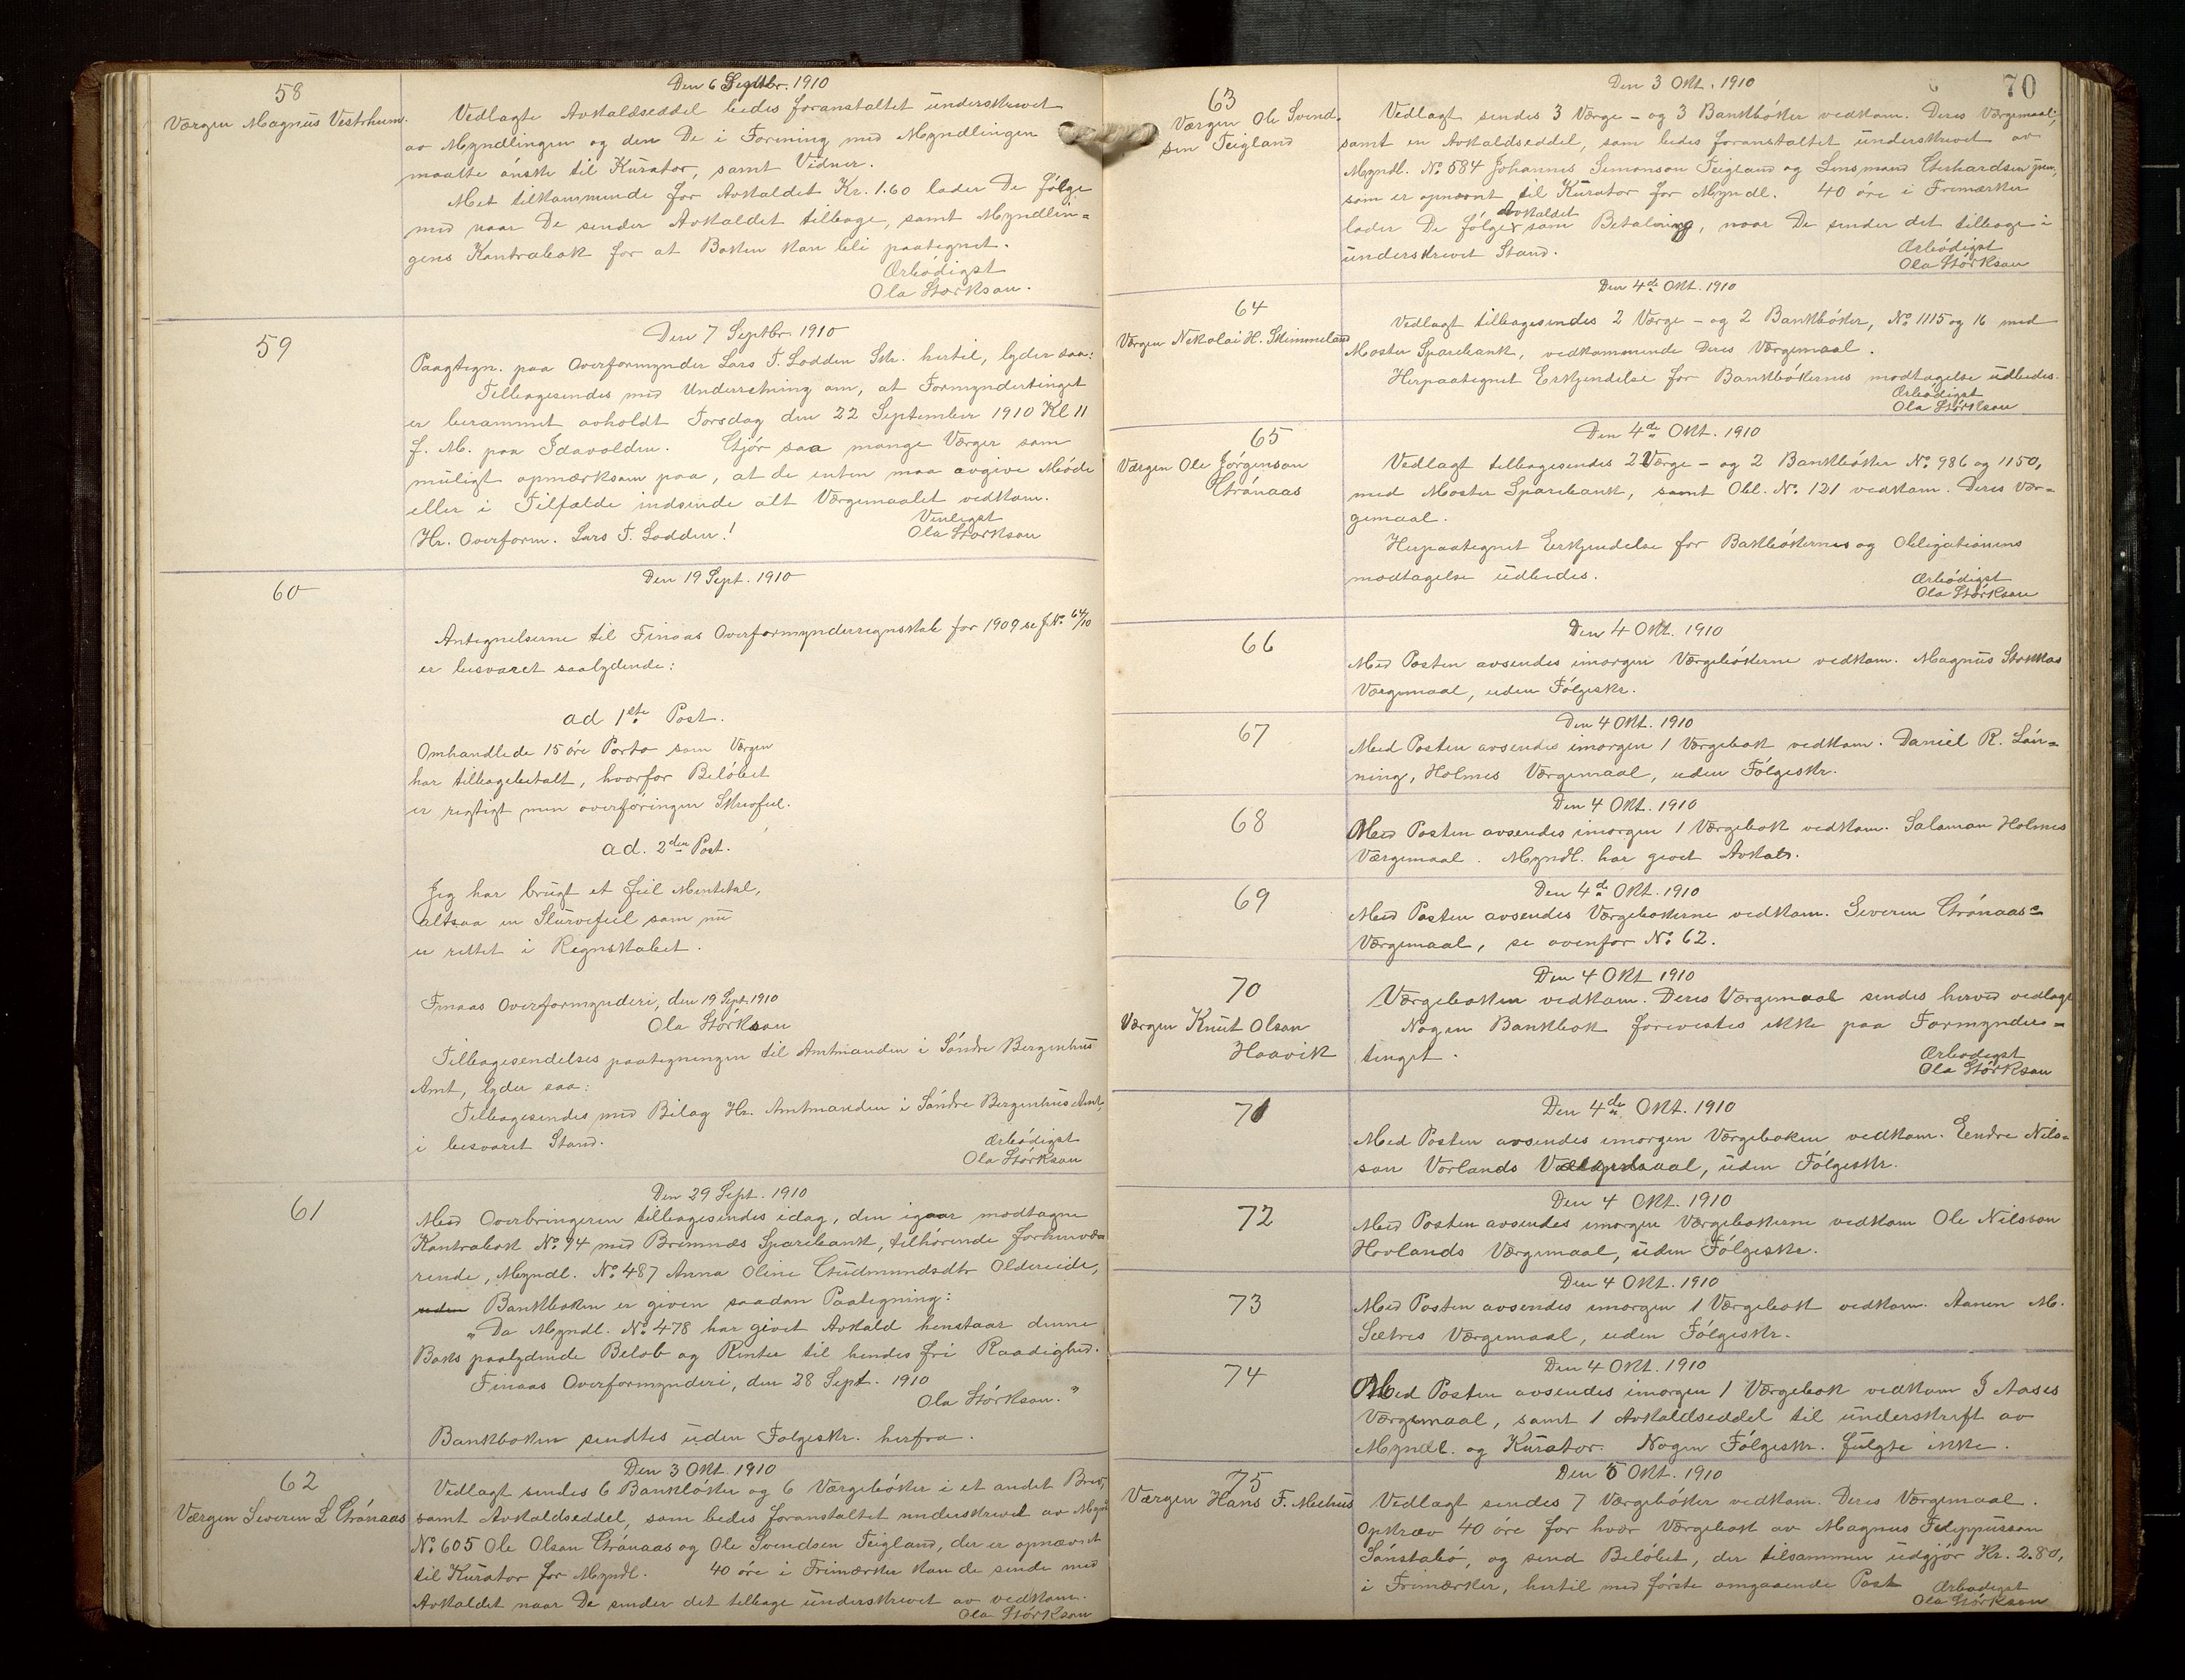 58
Værgen Magnus Vestrhum.
Den 6 Septbr. 1910
Vedlagte Avkaldseddel bedes foranstaltet underskrevet
av Myndlingen og den De i Forening med Myndlingen
maatte ønske til Kurator, samt Vidner.
Met tilkommende for Avkaldet Kr. 1.60 lader De følge
med naar De sender Avkaldet tilbage, samt Myndlin=
gens Kontrabok for at Boken kan bli paategnet.
Ærbødigst
Ola Størkson.
59
Den 7 Septbr. 1910
Paategn. paa Overformynder Lars T. Lodden Skr. hertil, lyder saa:
Tilbagesendes med Underretning om, at Formyndertinget
er berammet avholdt Torsdag den 22 September 1910 Kl 11
f. M. paa Idavolden. Gjør saa mange Værger som
muligt opmærksom paa, at de enten maa avgive Møde
eller i Tilfælde indsende alt Værgemaalet vedkom.
Venligst
Hr. Overform. Lars T. Lodden!
Ola Størkson
60
Den 19 Sept. 1910
Antegnelserne til Finaas Overformynderregnskab for 1909 se J. No. 64/10
er besvaret saalydende:
ad 1ste Post.
Omhandlede 15 øre Porto som Værgen
har tilbagebetalt, hvorfor Beløbet
er rigtigt men overføringen Skrivfeil.
ad. 2den Post.
Jeg har brugt et feil Mentetal,
altsaa en Slurvefeil som nu
er rettet i Regnskabet.
Finaas Overformynderi, den 19 Sept. 1910
Ola Størkson
Tilbagesendelses paategningen til Amtmanden i Søndre Bergenhus
Amt, lyder saa:
Tilbagesendes med Bilag Hr. Amtmanden i Søndre Bergenhus Amt,
i besvaret Stand.
Ærbødigst
Ola Størkson
61
Den 29 Sept. 1910
Med Overbringeren tilbagesendes idag, den igaar modtagne
Kontrabok No. 94 med Bremnes Sparebank, tilhørende forhenvæ
rende, Myndl. No. 487 Anna Oline Gudmundsdtr Oldereide,
uden Bankboken er given saadan Paategning:
"Da Myndl. No. 478 har givet Avkald henstaar denne
Boks paalydende Beløb og Renter til hendes fri Raadighed.
Finaas Overformynderi, den 28 Sept. 1910
Ola Størkson."
Bankboken sendtes uden Følgeskr. herfra.
62
Værgen Severen L Grønaas
Den 3 Okt. 1910
Vedlagt sendes 6 Bankbøker og 6 Værgebøker i et andet Brev,
samt Avkaldseddel, som bedes foranstaltet underskrevet av Mynd
No. 605 Ole Olson Grønaas og Ole Svendsen Teigland, der er opnævnt
til Kurator for Myndl. 40 øre i Frimærker kan de sende med
Avkaldet naar De sender det tilbage underskrevet av vedkom.
Ola Størkson
70
63
Værgen Ole Svend-
sen Teigland
Den 3 Okt. 1910
Vedlagt sendes 3 Værge- og 3 Bankbøker vedkom. Deres Værgemaal,
samt en Avkaldseddel, som bedes foranstaltet underskrevet av
Myndl. No. 584 Johannes Simonson Teigland og Lensmand Eberhardsen jun,
som er opnævnt til Kurator for Myndl. 40 øre i Frimærker
lader De følge Avkaldet som Betaling, naar De sender det tilbage i
underskrevet Stand.
Ærbødigst
Ola Størkson
64
Værgen Nekolai H. Skimmeland
Den 4de Okt. 1910
Vedlagt tilbagesendes 2 Værge- og 2 Bankbøker, No. 1115 og 16 med
Moster Sparebank, vedkommende Deres Værgemaal.
Herpaategnet Erkjendelse for Bankbøkernes modtagelse udbedes.
Ærbødigst
Ola Størkson
65
Værgen Ole Jørgenson
Grønaas
Den 4de Okt. 1910
Vedlagt tilbagesendes 2 Værge- og 2 Bankbøker No. 986 og 1150,
med Moster Sparebank, samt Obl. No. 121 vedkom. Deres Vær=
gemaal.
Herpaategnet Erkjendelse for Bakbøkernes og Obligationens
modtagelse udbedes.
Ærbødigst
Ola Størkson
66
Den 4 Okt. 1910
Med Posten avsendes imorgen Værgebøkerne vedkom. Magnus Stokkas
Værgemaal, uden Følgeskr.
67
Den 4 Okt. 1910
Med Posten avsendes imorgen 1 Værgebok vedkom. Daniel R. Løn=
ning, Holmes Værgemaal, uden Følgeskr.
68
Den 4 Okt. 1910
Med Posten avsendes imorgen 1 Værgebok vedkom. Salamon Holmes
Værgemaal. Myndl. har givet Avkald.
69
Den 4de Okt. 1910
Med Posten avsendes Værgebokerne vedkom. Severen Grønaas's
Værgemaal, se ovenfor No. 62.
70
Værgen Knut Olson
Haavik
Den 4 Okt 1910
Værgeboken vedkom. Deres Værgemaal sendes herved vedlagt
Nogen Bankbok forevistes ikke paa Formynder=
tinget.
Ærbødigst
Ola Størkson
71
Den 4de Okt. 1910
Med Posten avsendes imorgen Værgeboken vedkom. Eendre Nils=
son Vorlands Værgemaal, uden Følgeskr.
72
Den 4 Okt. 1910
Med Posten avsendes imorgen Værgebokerne vedkom Ole Nilsson
Hovlands Værgemaal, uden Følgeskr.
73
Den 4 Okt. 1910
Med Posten avsendes imorgen 1 Værgebok vedkom. Aanen M.
Sætres Værgemaal, uden Følgeskr.
74
Den 4 Okt. 1910
Med Posten avsendes imorgen 1 Værgebok vedkom J Aases
Værgemaal, samt 1 Avkaldseddel til underskrift av
Myndl. og Kurator. Nogen Følgeskr. fulgte ikke.
75
Værgen Hans F. Mehus
Den 5 Okt. 1910
Vedlagt sendes 7 Værgebøker vedkom. Deres Værgemaal.
Opkræv 40 øre for hvær Værgebok av Magnus Filippusson
Sønstabø, og send Beløbet, der tilsammen udgjør Kr. 2.80,
i Frimærker, hertil med første omgaaende Post
Ærbødigst
Ola Størkson